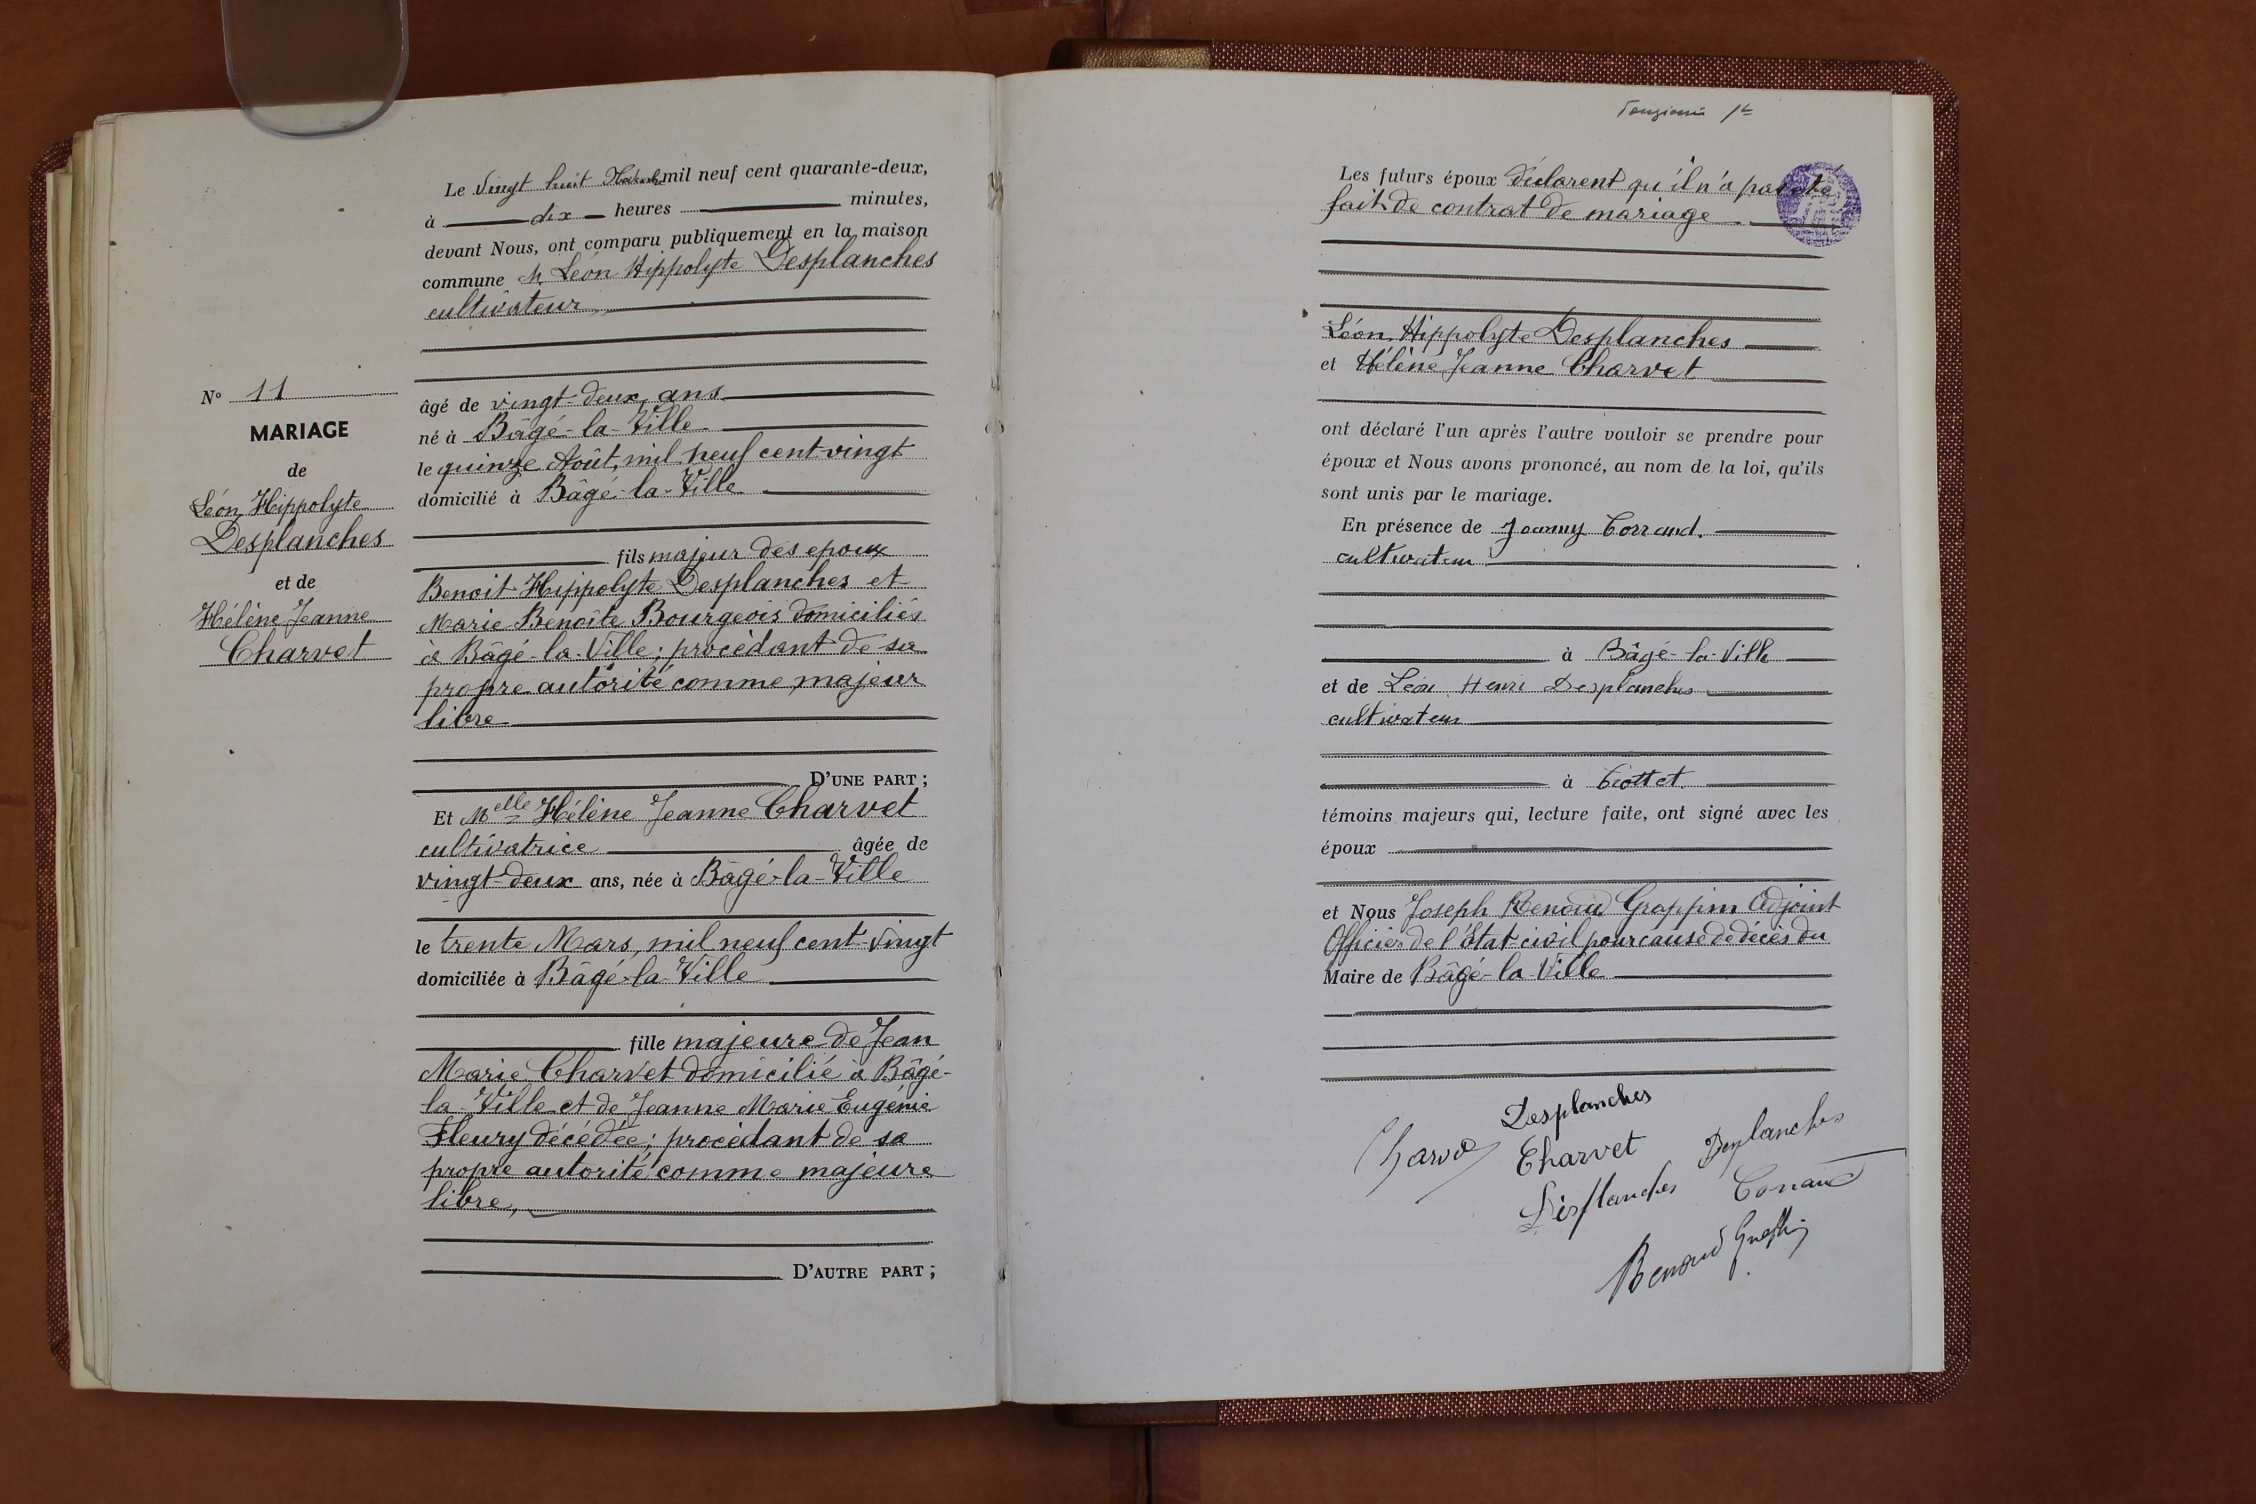 Le vingt huit mil neuf cent quarante-deux,
à dix heures minutes,
devant Nous, ont comparu publiquement en la maison
commune M. Léon Hippolyte Desplanches
cultivateur
âgé de vingt-deux ans
né à Bâgé-la-Ville
le quinze Août, mil neuf cent-vingt
domicilié à Bâgé-la-Ville
fils majeur des époux
Benoit Hippolyte Desplanches et
Marie Benoîte Bourgeois domiciliés
à Bâgé-la-Ville; procèdant de sa
propre autorité comme majeur
libre
D'UNE PART;
N° 11
MARIAGE
de
Léon Hippolyte
Desplanches
et de
Hélène Jeanne
Charvet
Et Melle Hélène Jeanne Charvet
cultivatrice âgée de
vingt-deux ans, née à Bâgé-la-Ville
le trente Mars, mil neuf cent-vingt
domiciliée à Bâgé-la-Ville
fille majeure de Jean
Marie Charvet domicilié à Bâgé-
la-Ville et de Jeanne Marie Eugénie
Fleury décédée; procèdant de sa
propre autorité comme majeure
libre,
D'AUTRE PART;
Les futurs époux déclarent qu'il n'a pas été
fait de contrat de mariage
Léon Hippolyte Desplanches
et Hélène Jeanne Charvet
ont déclaré l'un après l'autre vouloir se prendre pour
époux et Nous avons prononcé, au nom de la loi, qu'ils
sont unis par le mariage.
En présence de Joanny Corrand.
cultivateur
à Bâgé-la-Ville
et de Léon Henri Desplanches
cultivateur
à Crottet.
témoins majeurs qui, lecture faite, ont signé avec les
époux
et Nous Joseph Renoud Grappin Adjoint
Officier de l'État-civil pour cause de décès du
Maire de Bâgé-la-Ville
Desplanches
Charvet
Charvet
Desplanches
Desplanches
Corrand
Renoud Grappin